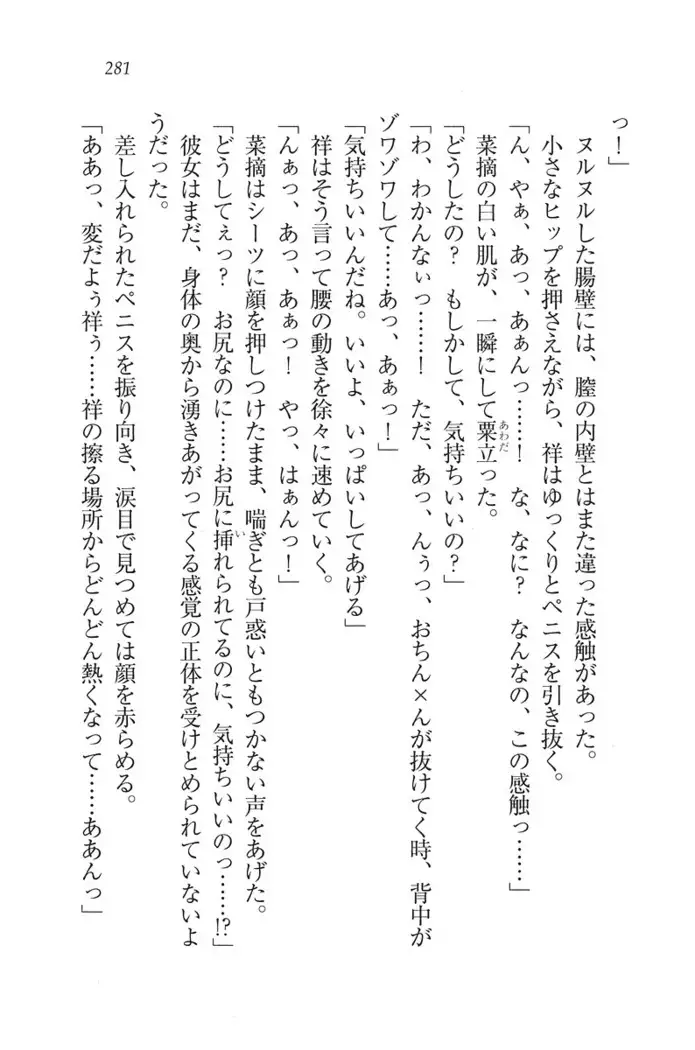 281
っ!」
ヌルヌルした腸壁には、膣の内壁とはまた違った感触があった。
小さなヒップを押さえながら、祥はゆっくりとペニスを引き抜く。
「ん、やぁ、あっ、あぁんっ……! な、なに? なんなの、この感触っ……」
菜摘の白い肌が、一瞬にして粟立った。
あわだ
「どうしたの? もしかして、気持ちいいの?」
「わ、わかんなぃっ……! ただ、あっ、んぅっ、おちん×んが抜けてく時、背中が
ゾワゾワして……あっ、あぁっ!」
「気持ちいいんだね。いいよ、いっぱいしてあげる」
祥はそう言って腰の動きを徐々に速めていく。
「んぁっ、あっ、あぁっ! やっ、はぁんっ!」
菜摘はシーツに顔を押しつけたまま、喘ぎとも戸惑いともつかない声をあげた。
「どうしてぇっ? お尻なのに……お尻に挿れられてるのに、気持ちいいのっ……!?」
い
彼女はまだ、身体の奥から湧きあがってくる感覚の正体を受けとめられていないよ
うだった。
差し入れられたペニスを振り向き、涙目で見つめては顔を赤らめる。
「ああっ、変だよぅ祥ぅ……祥の擦る場所からどんどん熱くなって……ああんっ」